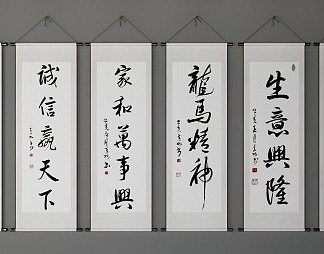 誠信贏天下
家和萬事興
龍馬精神
生意興隆